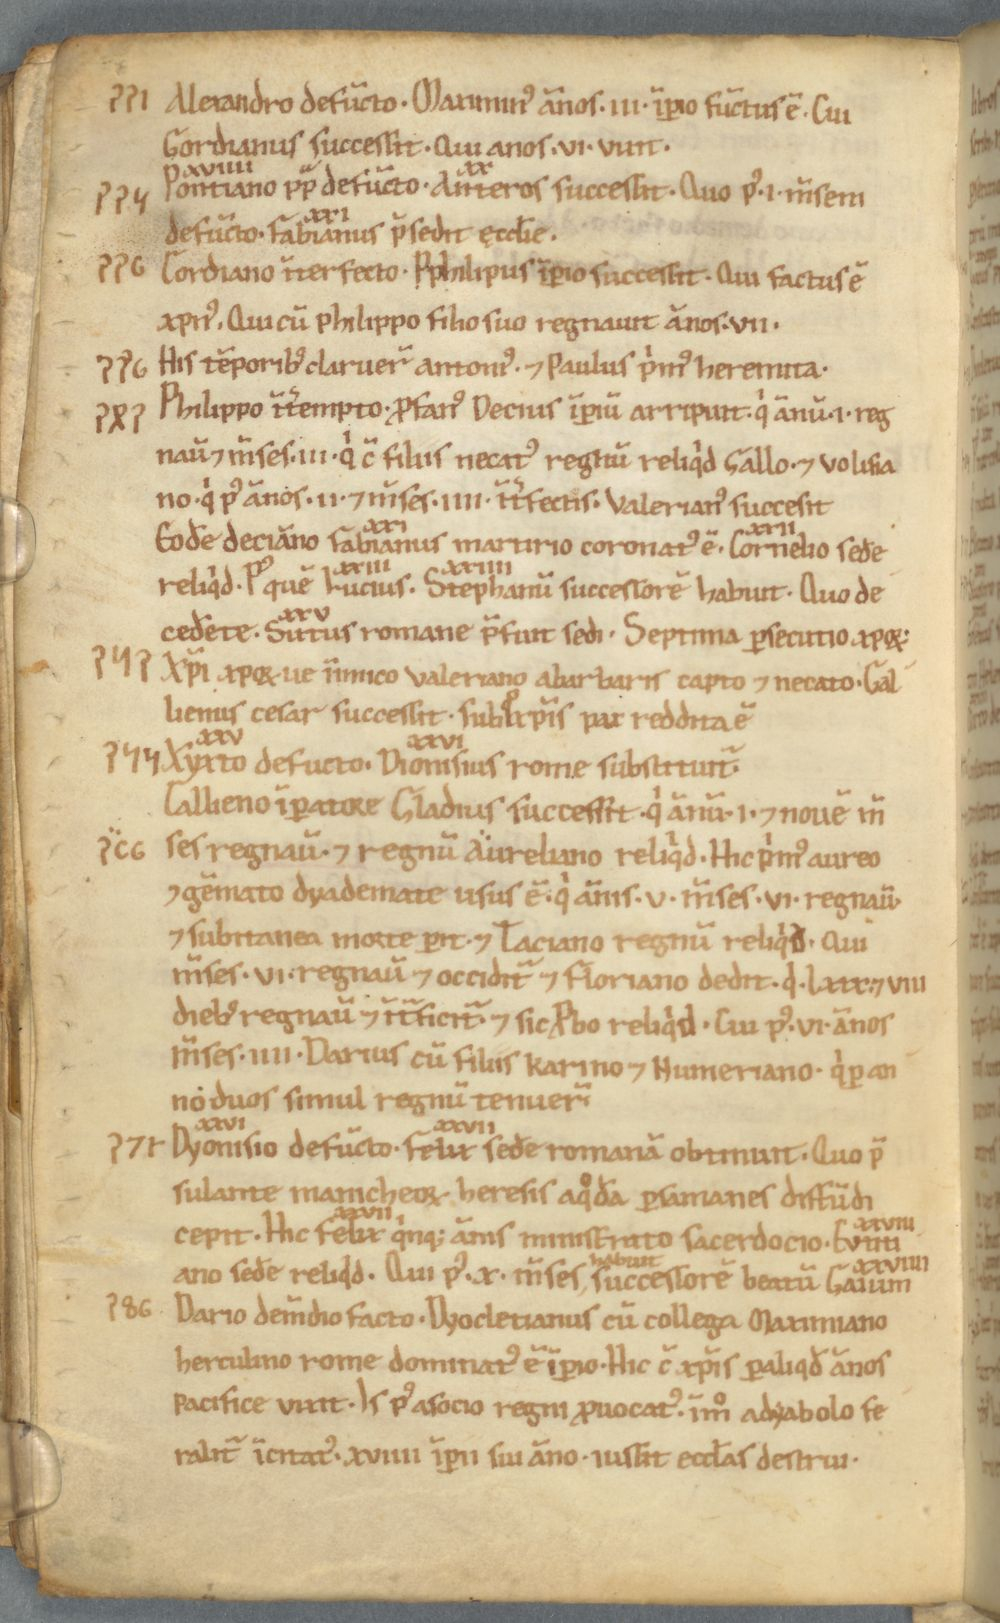 221 Alexandro defũcto · Maximin⁹ ãnos · iii · ĩꝑio fũctus ẽ · Cui
Gordianus successit · Qui anos · vi · vixit ·
xviiii xx
224 Pontiano pp̃ defũcto · Anteros successit · Quo p⁹ · i · m̃sem
xxi
defũcto · fabianus p̃sedit ęccłie ·
226 Gordiano ĩterfecto · Pphilipus ĩꝑio successit · Qui factus ẽ
xpĩn⁹ · Qui cũ philippo filio suo regnauit ãnos · vii ·
226 His tẽporib⁹ claruer̃ antoni⁹ · ⁊ Paulus p̍m⁹ heremita ·
Philippo ĩtẽmpto · ꝓfan⁹ Decius ĩꝑiũ arripuit · q̍ ãnũ · i · reg
naũ ⁊ m̃ses · iii · q̍ c̃ filiis necat⁹ regnũ reliq̍d Gallo · ⁊ volisia
no · q̍ p⁹ ãnos · ii · ⁊ m̃ses · iiii · ĩt̃fectis · Valerian⁹ succesit
xxi xxii
Eodẽ deciãno fabianus martirio coronat⁹ ẽ · Cornelio sedẽ
xxiii xxiiii
reliq̍d · P⁹ quẽ Lucius · Stephanũ successorẽ habuit · Quo de
xxv
cedẽte · Sixtus romane p̃fuit sedi · Septima ꝑsecutio xp̃oꝝ :
Xp̃i xp̃oꝝ-ue ĩimico valeriano abarbaris capto ⁊ necato · Gal
lienus cesar successit · sub q⁰ xp̃is pax reddita ẽ
xxv xxvi
244 Xyxto defucto · Dionisius rome substituit̃ ·
Gallieno ĩꝑatore Gladius successit · q̍ ãnũ · i · ⁊ nouẽ m̃
ses regnaũ · ⁊ regnũ Aureliano reliq̍d · Hic p̍m⁹ aureo
⁊ gẽmato dyademate usus ẽ · q̍ ãnis · v · m̃ses · vi · regnaũ ·
⁊ subitanea morte ꝑit · ⁊ Taciano regnũ reliq̍d · Qui
m̃ses · vi · regnaũ ⁊ occidit̃ ⁊ Floriano dedit · q̍ · lxxx · ⁊ viii
dieb⁹ regnaũ ⁊ ĩt̃ficit̃ · ⁊ sic ꝓbo reliq̍d · Cui p⁹ · vi · ãnos
m̃ses · iiii · Darius cũ filiis karino ⁊ Numeriano · q̍ ꝑ an
no duos simul regnũ tenuer̃
xxvi xxvii
Dyonisio defũcto · felix sedẽ romanã obtinuit · Quo p̃
sulante manicheoꝝ heresis aq⁰dã ꝑsamanes diffũdi
xxvii xxviii
cepit · Hic felix q̍nq; ãnis ministrato sacerdocio · Euuti
habuit xxviiii
ano sedẽ reliq̍d · Qui p⁹ · x · m̃ses, successorẽ beatũ Gaium
286 Dario dem̃dio facto · Dyocletianus cũ collega Maximiano
herculino rome dominat⁹ ẽ ĩꝑio · Hic c̃ xp̃is ꝑ aliq̍d ãnos
pacifice vixit · Is p⁹ asocio regni ꝓuocat⁹ · ĩm⁰ adyabolo fe
ralit̃ ĩcitat⁹ · xviiii ĩꝑii sui ãno · iussit eccłas destrui ·